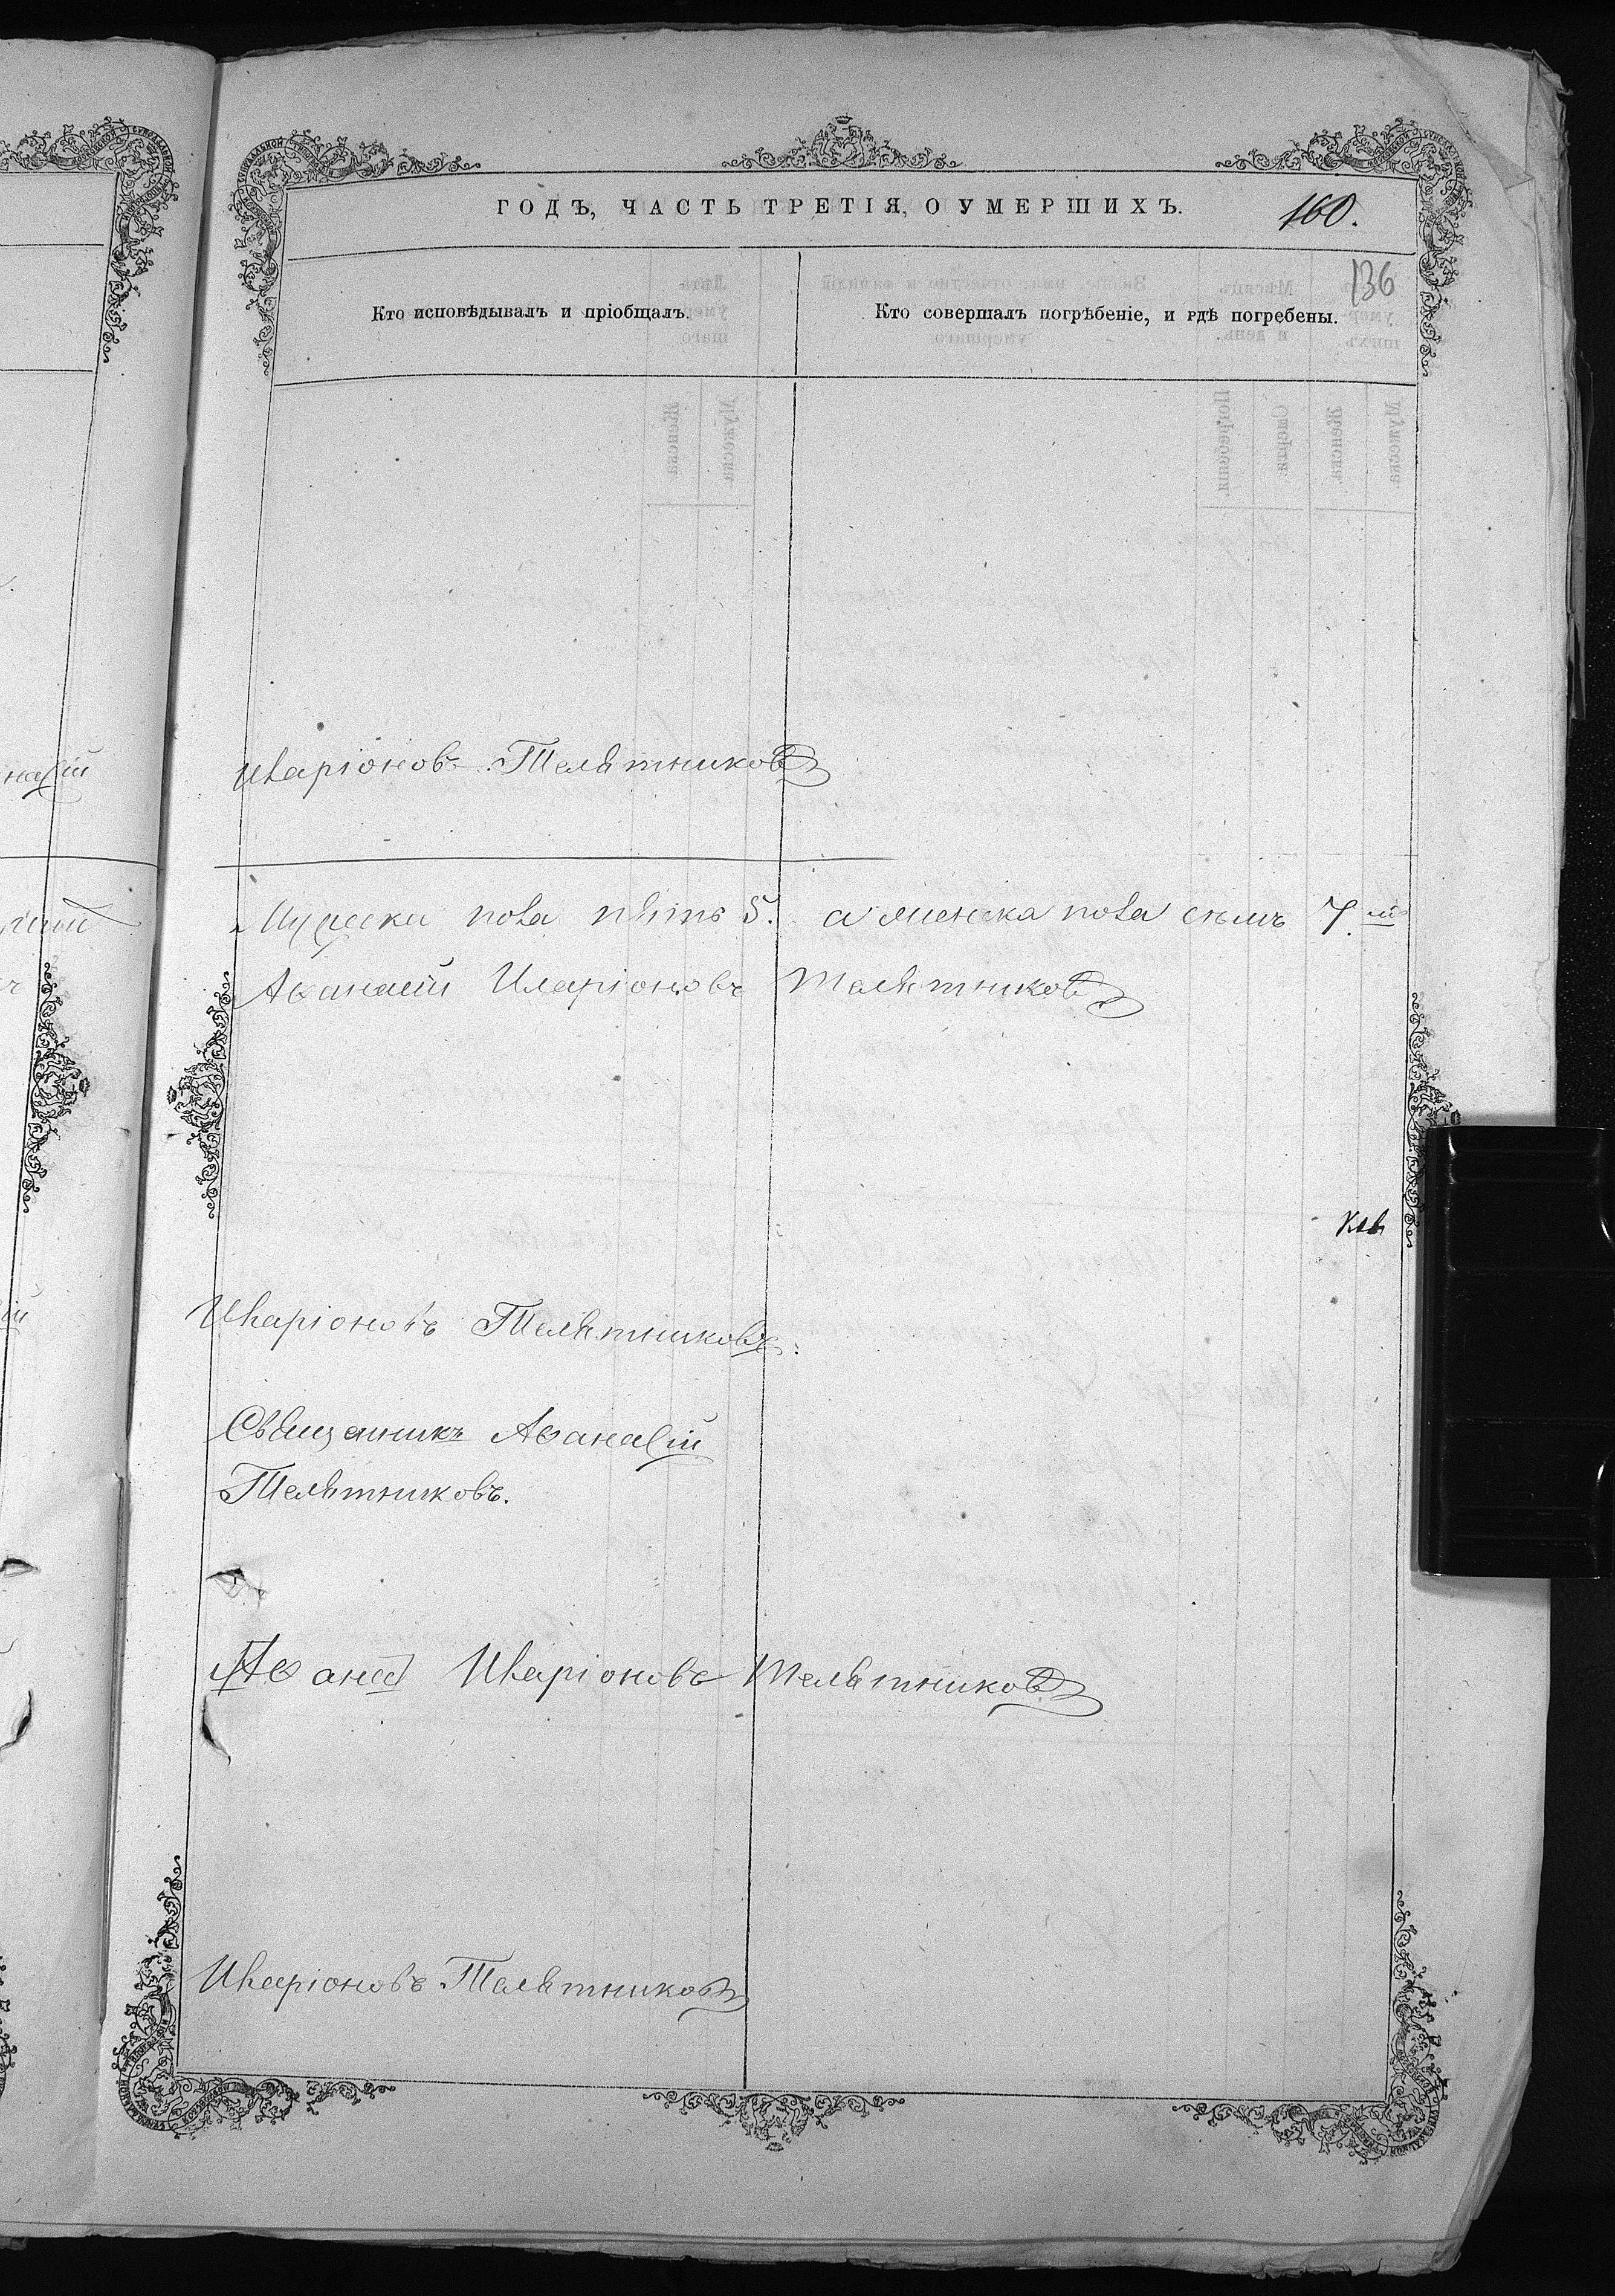 ГОДЪ, ЧАСТЬ ТРЕТІЯ, О УМЕРШИХЪ.
160.
136
Кто исповѣдывалъ и пріобщалъ.
Кто совершалъ погрѣбеніе, и гдѣ погребены.
Иларіоновъ Телятниковъ
Мужеска пола пять 5. а женска пола семь 7.
Аѳанасій Иларіоновъ Телятниковъ
Иларіоновъ Телятниковъ.
Священникъ Аѳанасій
Телятниковъ.
Аѳанасій Иларіоновъ Телятниковъ
Иларіоновъ Телятниковъ